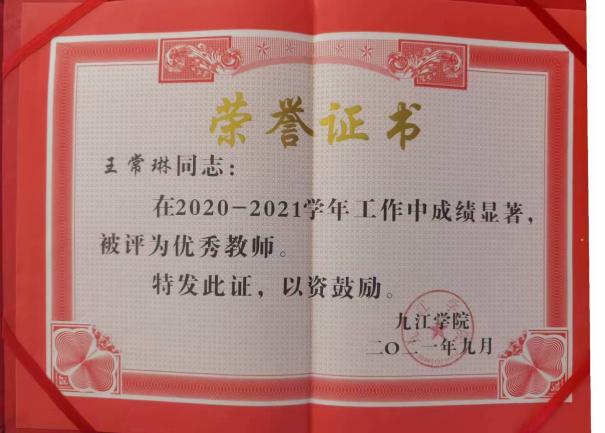 荣誉证书
王常琳同志：
在2020-2021学年工作中成绩显著，
被评为优秀教师。
特发此证，以资鼓励。
九江学院
二〇二一年九月